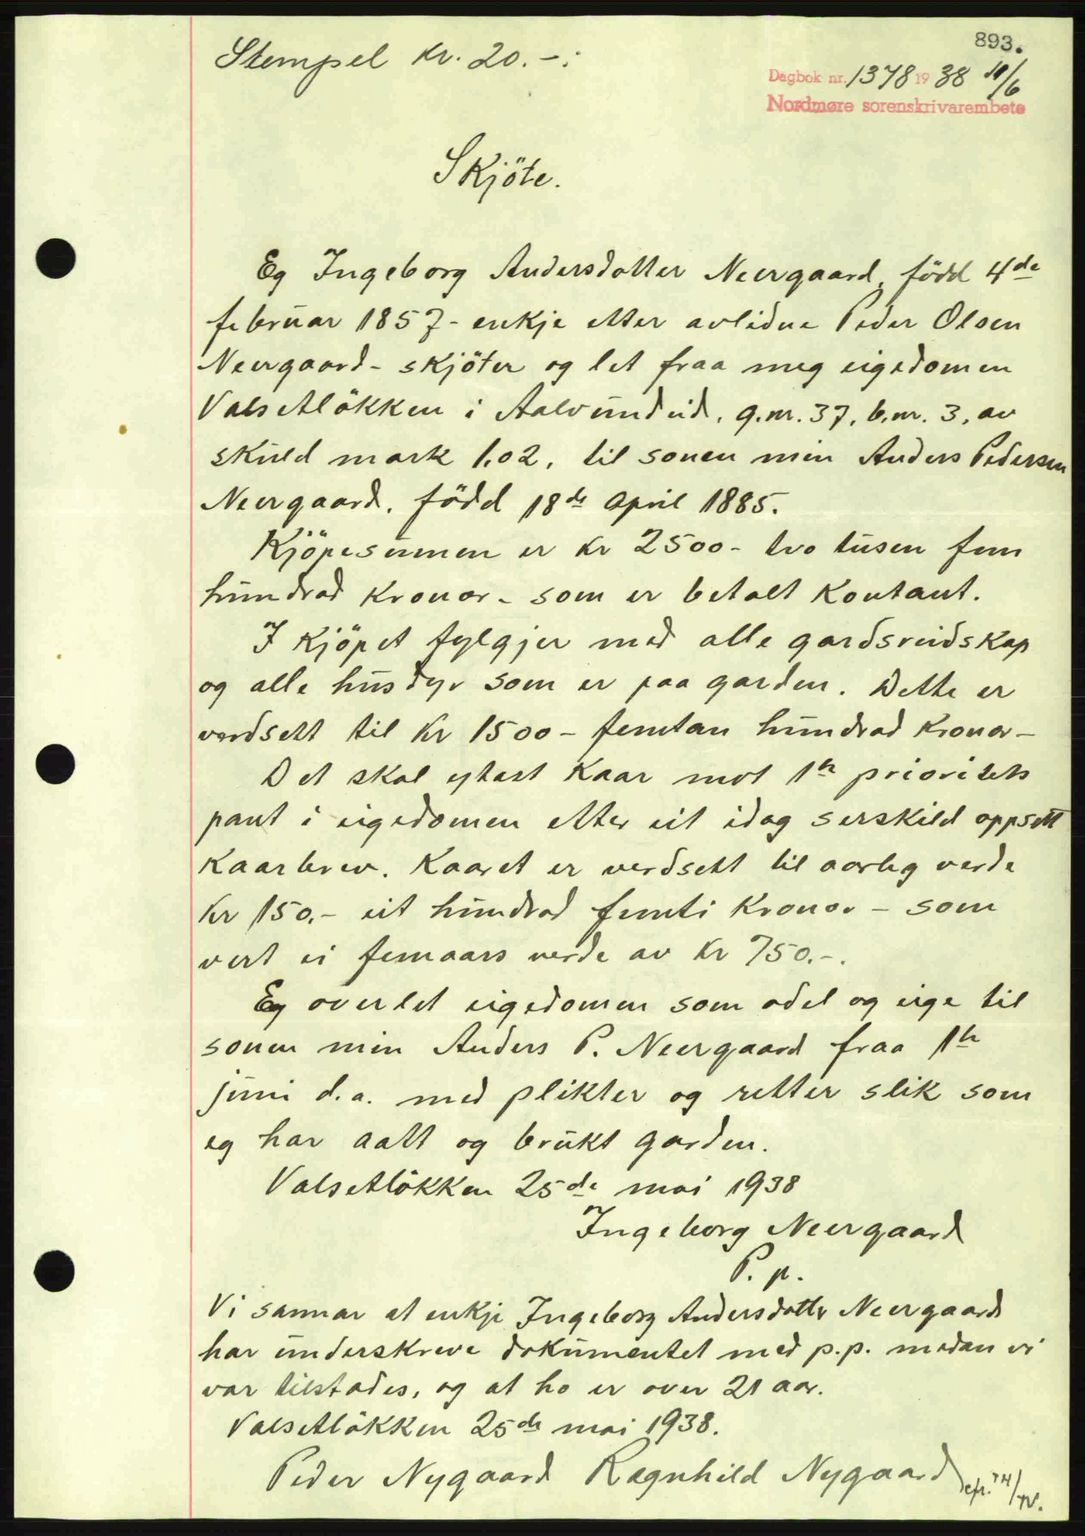 893.
Stempel Kr. 20.-:
Dagbok nr. 1378 1938 10/6
Nordmøre sorenskrivarembete
Skjöte.
Eg Ingeborg Andersdotter Neergaard, född 4de
februar 1857 - enkje etter avlidne Peder Olsen
Neergaard - skjöter og let fraa meg eigedomen
Valsetlökken i Aalvundeid, g.nr. 37, b.nr. 3, av
skuld mark 1,02, til sonen min Anders Pedersen
Neergaard, född 18de april 1885.
Kjöpesummen er kr 2500 - tvo tusen fem
hundrad kronor - som er betalt kontant.
I kjöpet fylgjer med alle gardsreidskap
og alle husdyr som er paa garden. Dette er
verdsett til kr 1500 - femtan hundrad kronor -
Det skal ytast kaar mot 1ste prioritets
pant i eigedomen etter eit idag serskild oppsett
kaarbrev. Kaaret er verdsett til aarleg verde
kr 150.- eit hundrad femti kronor - som
vert ei femaars verde av kr 750.-.
Eg overlet eigedomen som odel og eige til
sonen min Anders P. Neergaard fraa 1ste
juni d.a. med plikter og retter slik som
eg har aatt og brukt garden.
Valsetlökken 25de mai 1938
Ingeborg Neergaard
P. p.
Vi sannar at enkje Ingeborg Andersdotter Neergaard
har underskreve dokumentet med p.p. medan vi
var tilstades, og at ho er over 21 aar.
Valsetlökken 25de mai 1938.
Peder Nygaard Ragnhild Nygaard